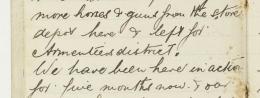 more horses & guns from the store
depot here & left for
Armentiers district.
We have been here in action
for five months now & our